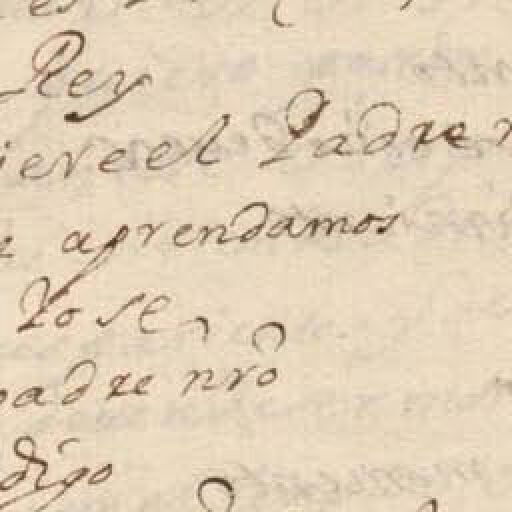 Rey
iere el Padre
aprendamos
Yo se
padre ñro
digo